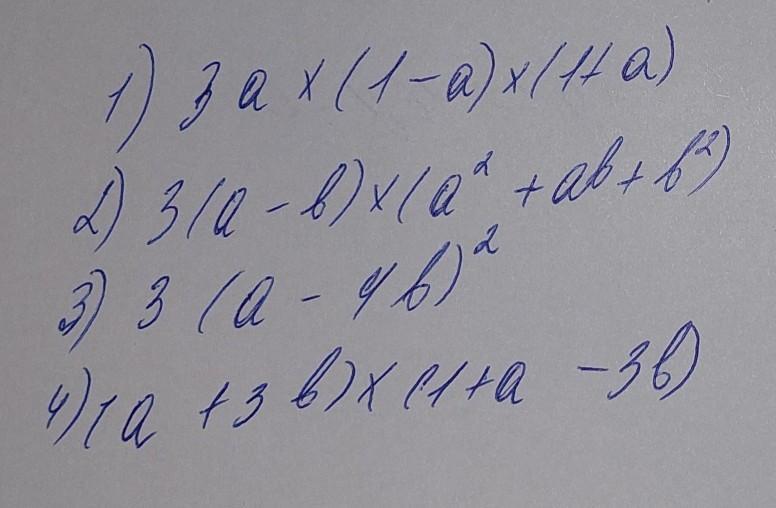 1) 3a×(1-a)×(1+a)
2) 3(a-b)×(a²+ab+b²)
3) 3(a-4b)²
4) (a+3b)×(1+a-3b)